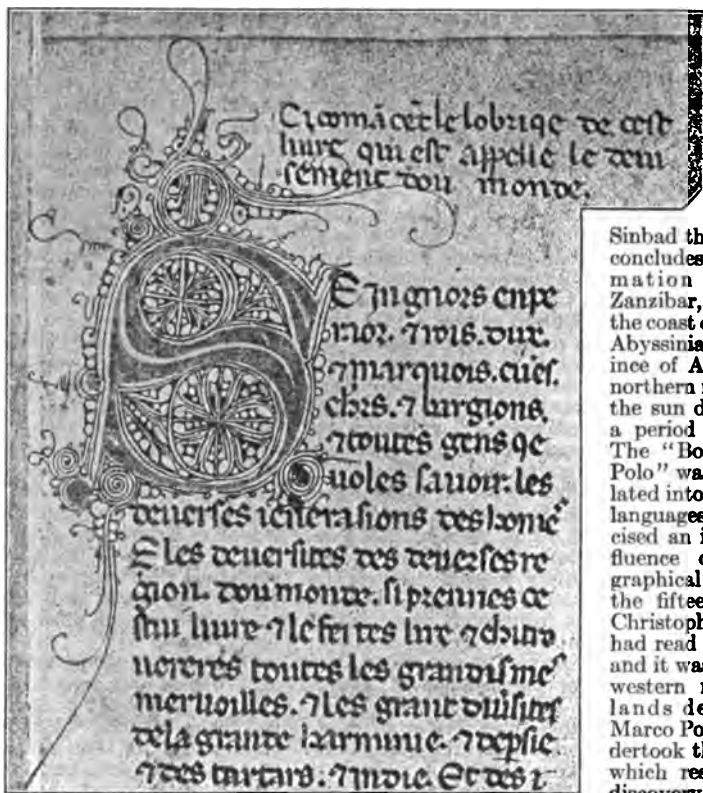 Ci comācēt le lobrique de cest
liure qui est appelle le deui
sement dou monde.
SEingnors enpe
raor. ⁊ rois. dux.
⁊ marquois. cues.
chrs. ⁊ bargions.
⁊ toutes gens qe
uoles sauoir. les
deuerses ienerasions des home
E les deuersites des deuerses re
gion. dou monde. si prennes ce
stui liure ⁊ le feites lire ⁊ chi tro
ueres toutes les grandismes
meruoilles. ⁊ les grant diuisites
de la grande harminie. ⁊ de psie
⁊ des tartars. ⁊ indie. Et des i
Sinbad th
concludes
mation
Zanzibar,
the coast o
Abyssinia
ince of A
northern r
the sun d
a period
The "Bo
Polo" wa
lated into
languages
cised an i
fluence o
graphical
the fiftee
Christoph
had read
and it was
western r
lands de
Marco Po
dertook th
which res
discovery